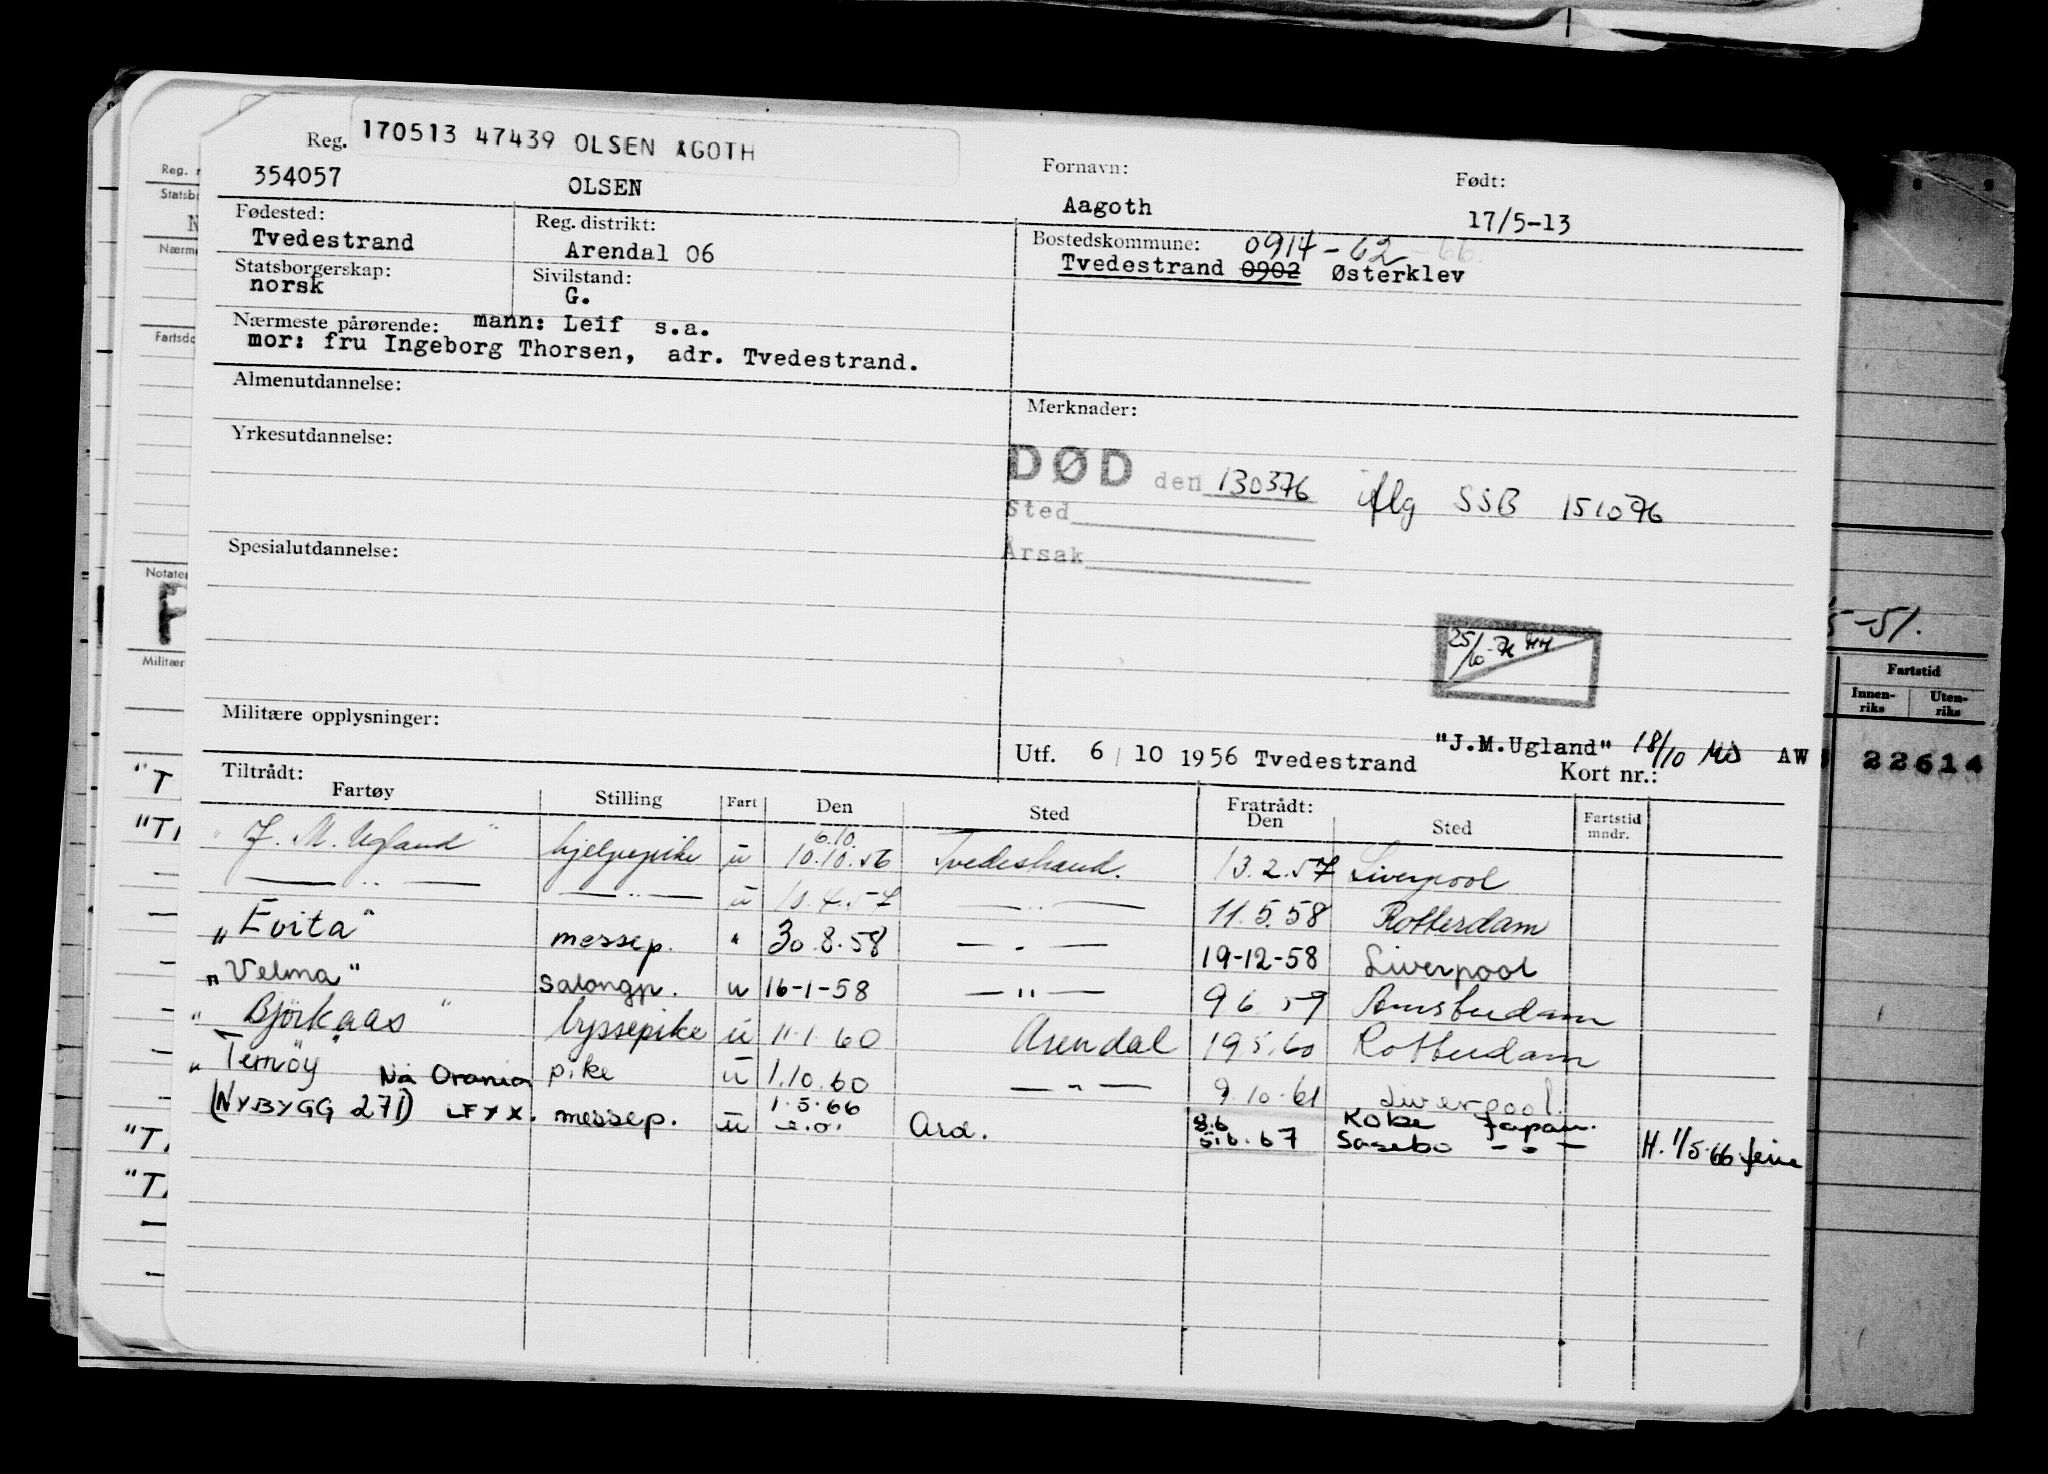 Reg. 170513 47439 OLSEN ÅGOTH
354057 OLSEN
Fornavn: Aagoth
Født: 17/5-13
Fødested: Tvedestrand
Reg. distrikt: Arendal 06
Bostedskommune: 0914-62-66.
Tvedestrand 0902 Østerklev
Statsborgerskap: norsk
Sivilstand: G.
Nærmeste pårørende: mann: Leif s.a.
mor: fru Ingeborg Thorsen, adr. Tvedestrand.
Almenutdannelse:
Merknader:
Yrkesutdannelse:
DØD den 130376 iflg SSB 151076
Sted
Årsak
Spesialutdannelse:
25/10-76 HH
Militære opplysninger:
Utf. 6/10 1956 Tvedestrand "J.M.Ugland" 18/10 AW
Kort nr.:
Tiltrådt:
Fartøy Stilling Fart Den Sted Fratrådt: Den Sted Fartstid mndr.
6.10.
"J. M. Ugland" hjelpepike u 10.10.56 Tvedestrand. 13.2.57 Liverpool
— " — — " — u 10.4.57 — " — 11.5.58 Rotterdam
"Evita" messep. " 30.8.58 — " — 19-12-58 Liverpool
"Velma" salongp. u 16-1-58 — " — 9.6.59 Amsterdam
"Björkaas" byssepike u 11.1.60 Arendal 19.5.60 Rotterdam
"Ternöy" pike u 1.10.60 — " — 9.10.61 Liverpool.
Nå Orania 1.5.66 8.6 Kobe Japan.
(NYBYGG 271) LFYX. messep. u Ard. 5.6.67 Sasebo — " — H. 1/5.66 ferie
Reg.
Statsb
N
Nærm
Fartsdo
Notater
Militær
"T
-51.
Fartstid
Innen-riks Uten-riks
22614